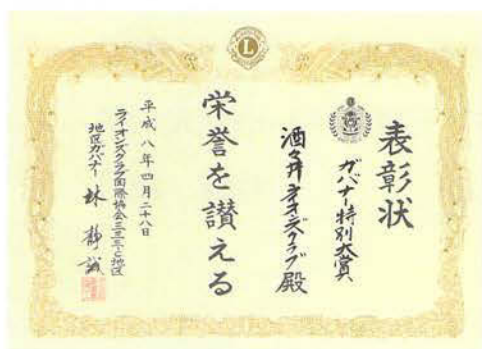 表彰状
ガバナー特別大賞
酒々井ライオンズクラブ殿
栄誉を讃える
平成八年四月二十八日
ライオンズクラブ国際協会三三三―C地区
地区ガバナー 林 静誠
L